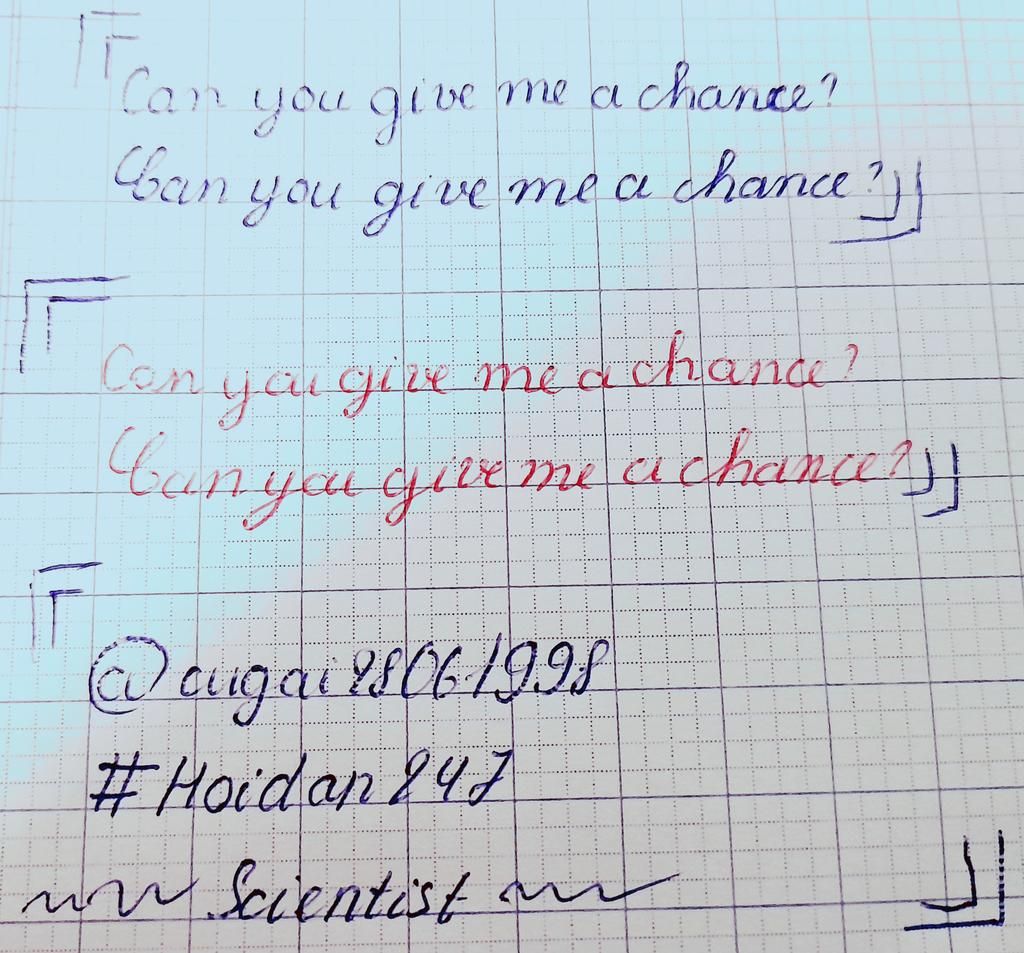 『Can you give me a chance?
Can you give me a chance?』
『Can you give me a chance?
Can you give me a chance?』
『@cugai28061998
#Hoidan247
~~ Scientist ~~』